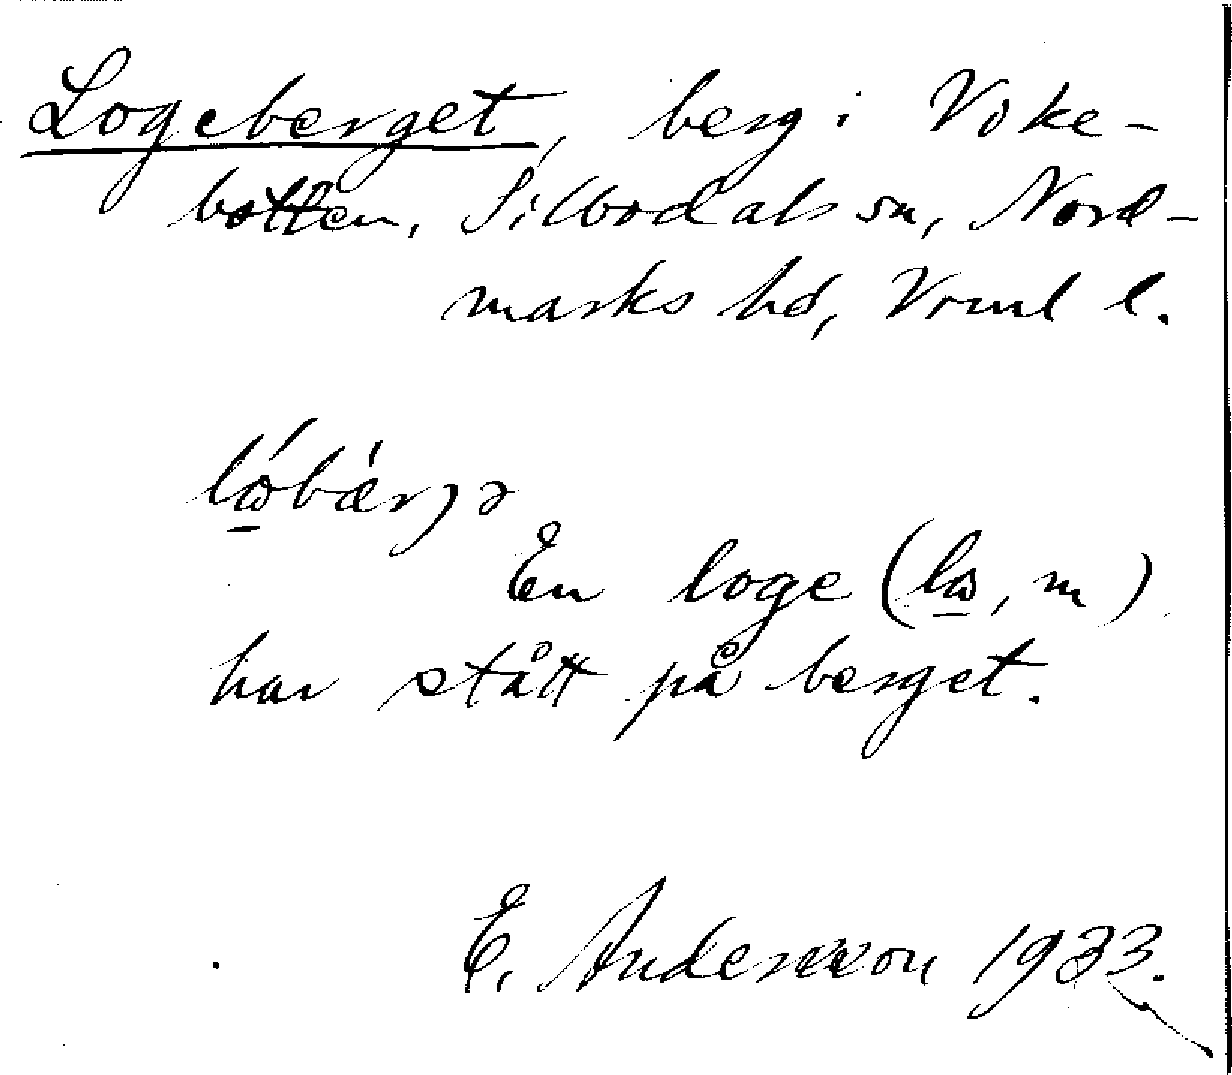 Logeberget, berg i Voke-
botten, Silbodals sn, Nord-
marks hd, Vrml l.
En loge (
, m)
har stått på berget.
E. Andersson 1933.